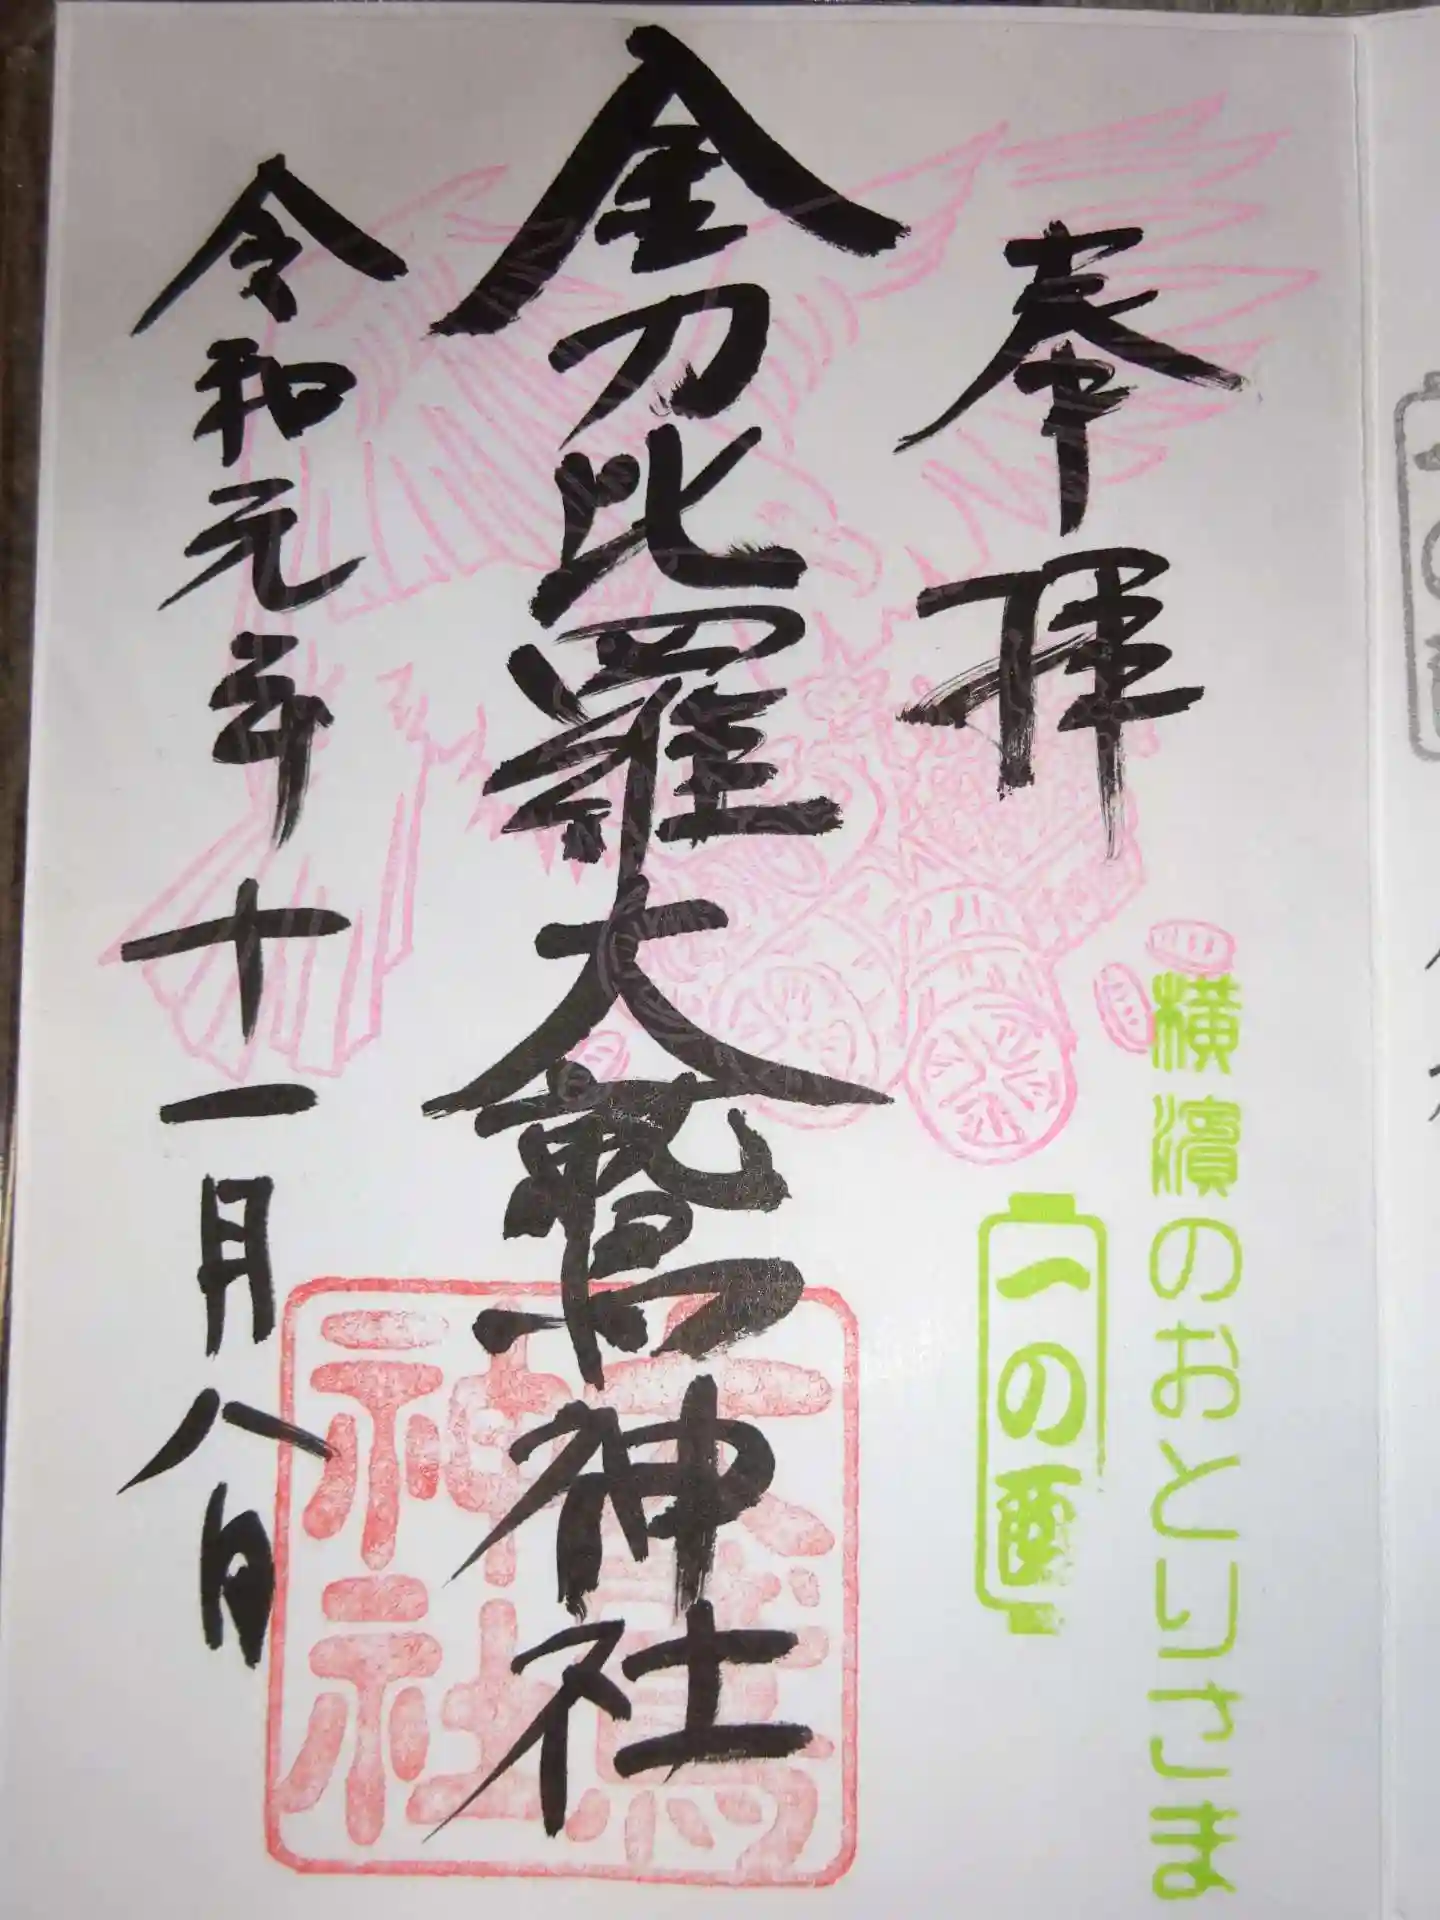 横濱のおとりさま
一の酉
奉拝
金刀比羅大鷲神社
令和元年十一月八日
大鳥神社